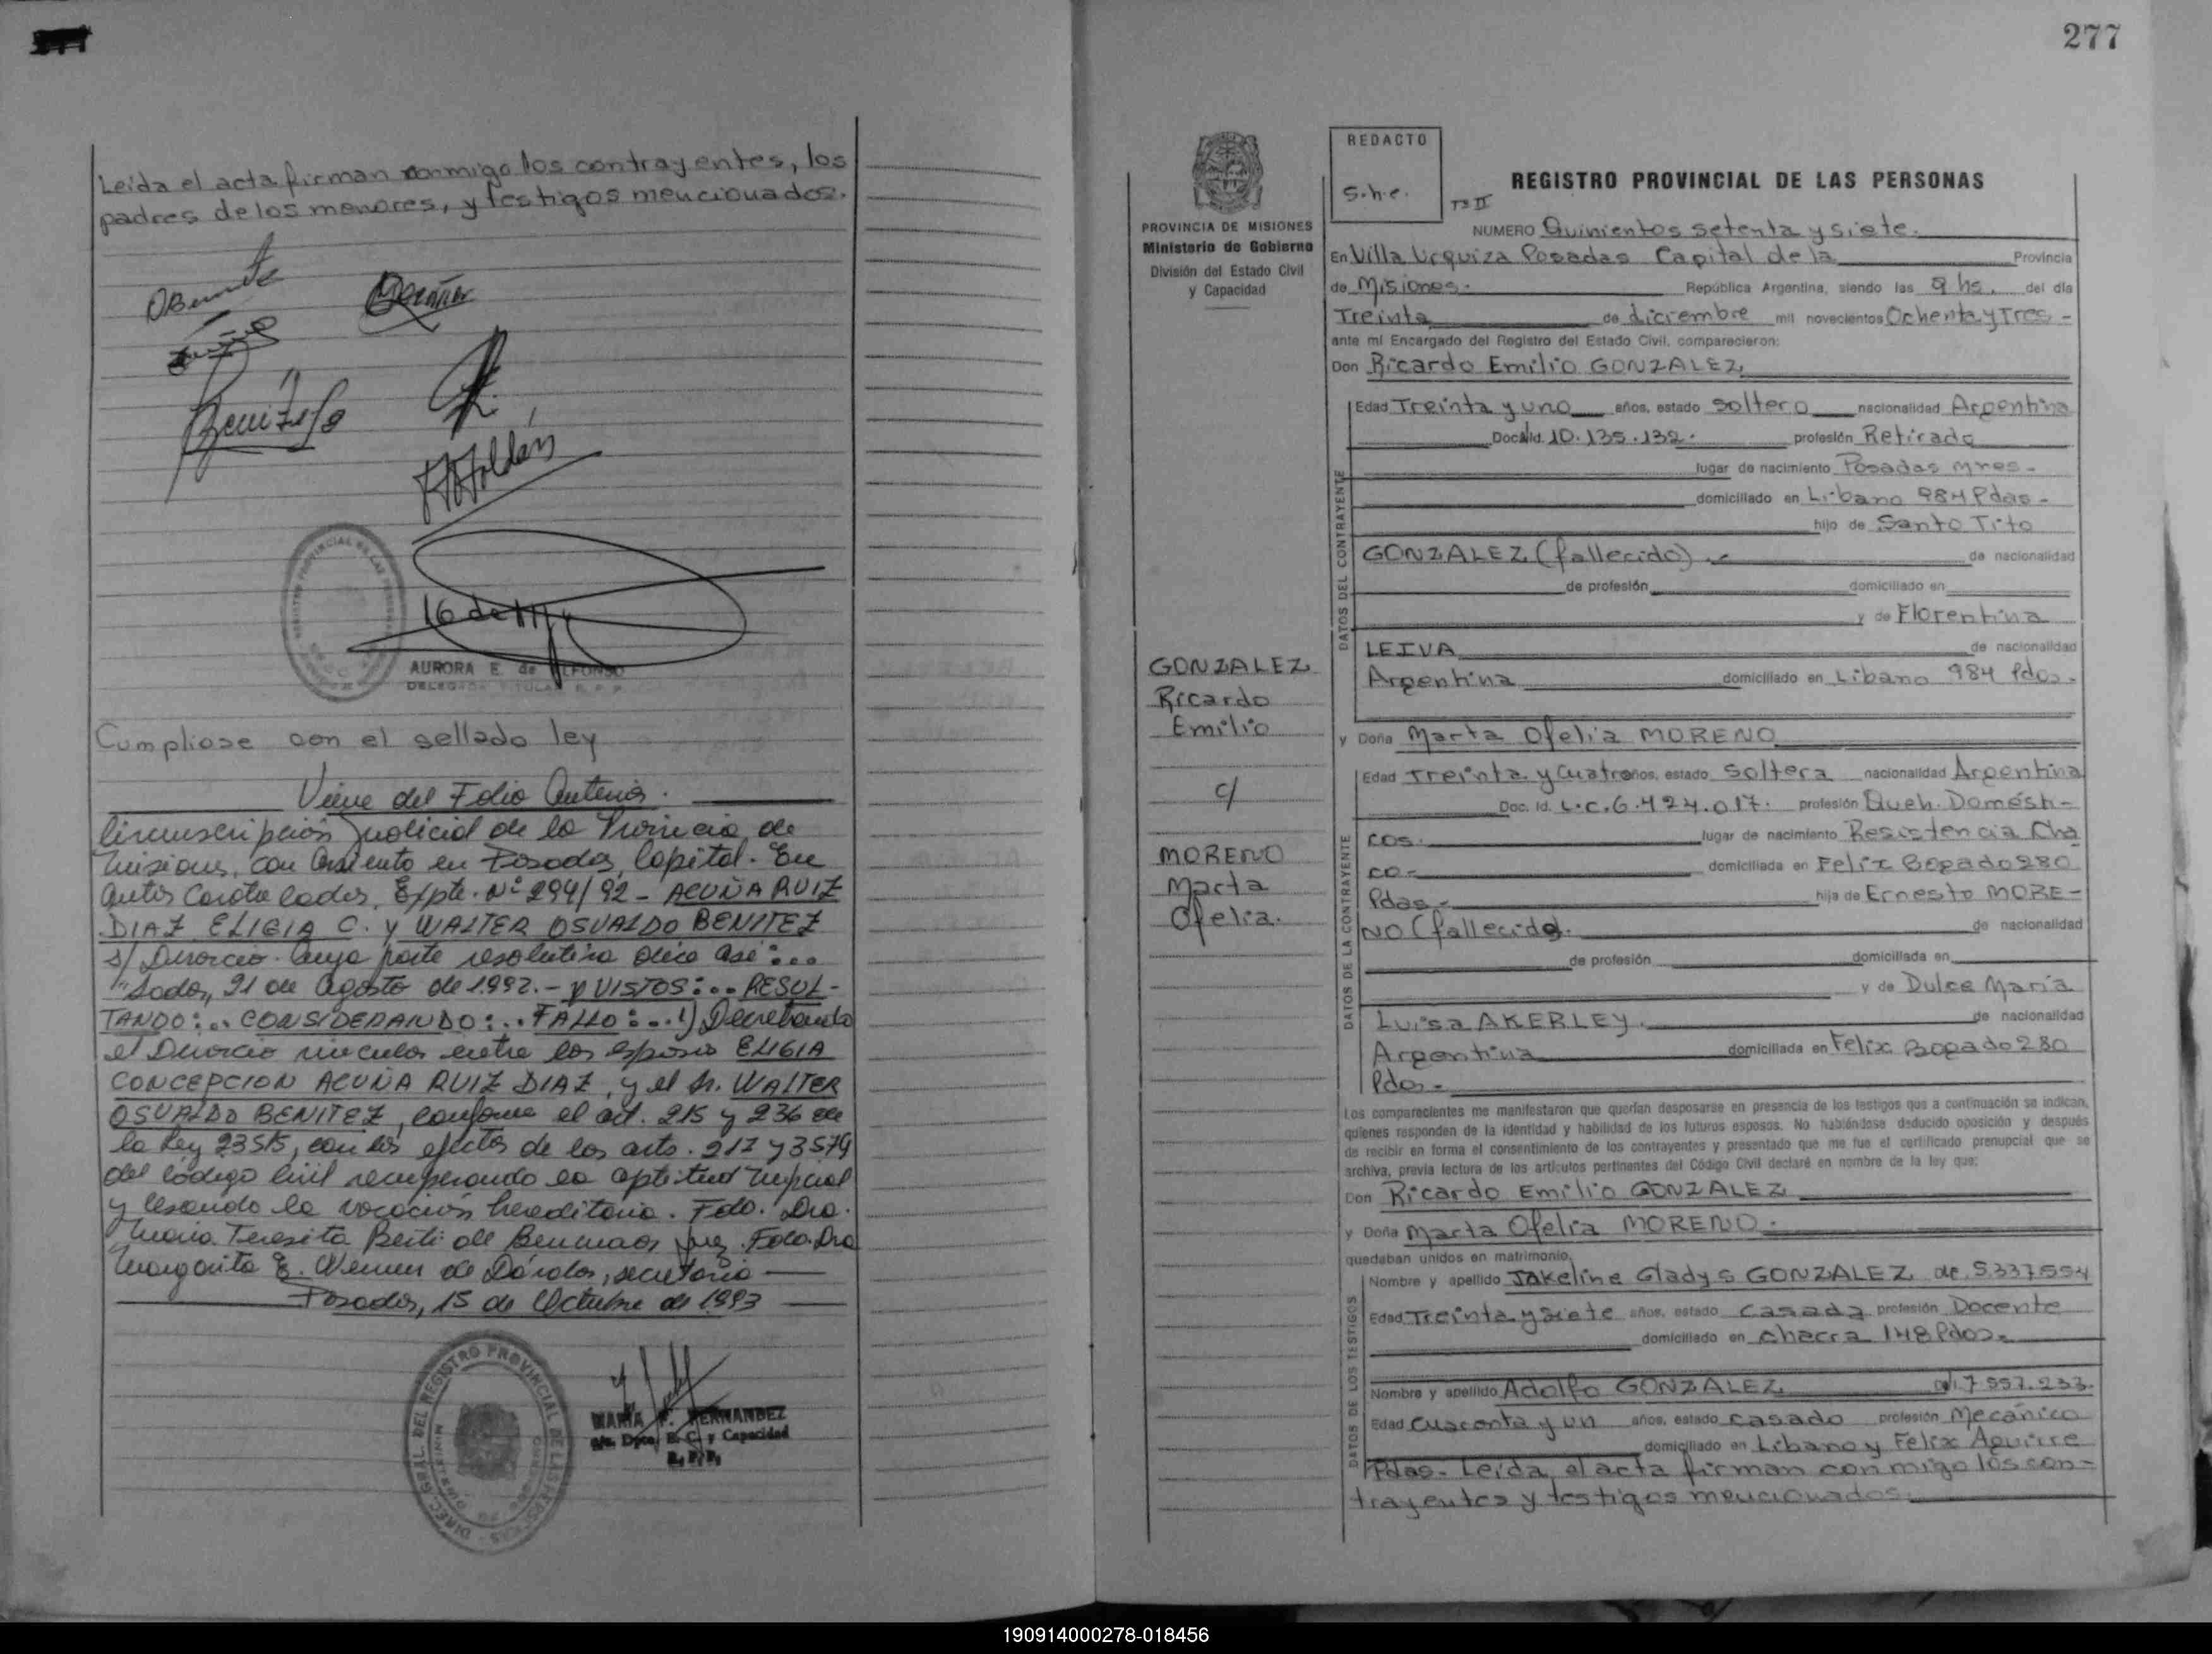 277
Leida el acta firman conmigo los contrayentes, los
padres de los menores, y testigos mencionados.
16 de
AURORA E. de ALFONSO
DELEGADA TITULAR R. P. P.
Cumpliose con el sellado ley
Viene del Folio Anterior.
Circunscripción Judicial de la Provincia de
Misiones, con asiento en Posadas, Capital. En
autos caratulados, Expte. Nº 294/92 - ACUÑA RUIZ
DIAZ ELIGIA C. y WALTER OSVALDO BENITEZ
s/ Divorcio. Cuya parte resolutiva dice así:...
21 de Agosto de 1992.- Y VISTOS:.. RESUL-
TANDO:.. CONSIDERANDO:.. FALLO:.. 1) Decretando
el Divorcio vincular entre los esposos ELIGIA
CONCEPCION ACUÑA RUIZ DIAZ, y el Sr. WALTER
OSVALDO BENITEZ, conforme el art. 215 y 236 de
la Ley 23515, con los efectos de los arts. 217 y 3574
del Código Civil recuperando la aptitud nupcial
y cesando la vocación hereditaria. Fdo. Dra.
María Teresita Juez. Fdo. Dra
Margarita E. de secretaria
Posadas, 15 de Octubre de 1993
DIREC. GRAL. DEL REGISTRO PROVINCIAL DE LAS PERSONAS
MARIA F. FERNANDEZ
E. C. y Capacidad
R. P. P.
PROVINCIA DE MISIONES
Ministerio de Gobierno
División del Estado Civil
y Capacidad
GONZALEZ
Ricardo
Emilio
c/
MORENO
Marta
Ofelia.
REDACTO
S.h.e.
Tº II
REGISTRO PROVINCIAL DE LAS PERSONAS
NUMERO Quinientos setenta y siete.
En Villa Urquiza Posadas Capital de la Provincia
de Misiones. República Argentina, siendo las 9 hs. del día
Treinta de diciembre mil novecientos Ochenta y Tres -
ante mí Encargado del Registro del Estado Civil, comparecieron:
Don Ricardo Emilio GONZALEZ
DATOS DEL CONTRAYENTE
Edad Treinta y uno años, estado soltero nacionalidad Argentina
Doc. Id. 10.135.132. profesión Retirado
lugar de nacimiento Posadas Mnes-
domiciliado en Libano 984 Pdas-
hijo de Santo Tito
GONZALEZ (fallecido).- de nacionalidad
de profesión domiciliado en
y de Florentina
LEIVA de nacionalidad
Argentina domiciliado en Libano 984 Pdas.
y Doña Marta Ofelia MORENO
DATOS DE LA CONTRAYENTE
Edad Treinta y cuatro años, estado soltera nacionalidad Argentina
Doc. Id. L.C.6.424.017. profesión Queh. Domésti-
cos. lugar de nacimiento Resistencia Cha
co- domiciliada en Felix Bogado 280
Pdas- hija de Ernesto MORE-
NO (fallecido). de nacionalidad
de profesión domiciliada en
y de Dulce María
Luisa AKERLEY. de nacionalidad
Argentina domiciliada en Felix Bogado 280
Pdas-
Los comparecientes me manifestaron que querían desposarse en presencia de los testigos que a continuación se indican,
quienes responden de la identidad y habilidad de los futuros esposos. No habiéndose deducido oposición y después
de recibir en forma el consentimiento de los contrayentes y presentado que me fue el certificado prenupcial que se
archiva, previa lectura de los artículos pertinentes del Código Civil declaré en nombre de la ley que:
Don Ricardo Emilio GONZALEZ
y Doña Marta Ofelia MORENO.
quedaban unidos en matrimonio.
DATOS DE LOS TESTIGOS
Nombre y apellido Jakeline Gladys GONZALEZ 5.337.554
Edad Treinta y siete años, estado casada profesión Docente
domiciliado en chacra 148 Pdas-
Nombre y apellido Adolfo GONZALEZ 7.557.233.
Edad cuarenta y un años, estado casado profesión Mecánico
domiciliado en Libano y Felix Aguirre
Pdas- Leida el acta firman conmigo los con-
trayentes y testigos mencionados.
190914000278-018456